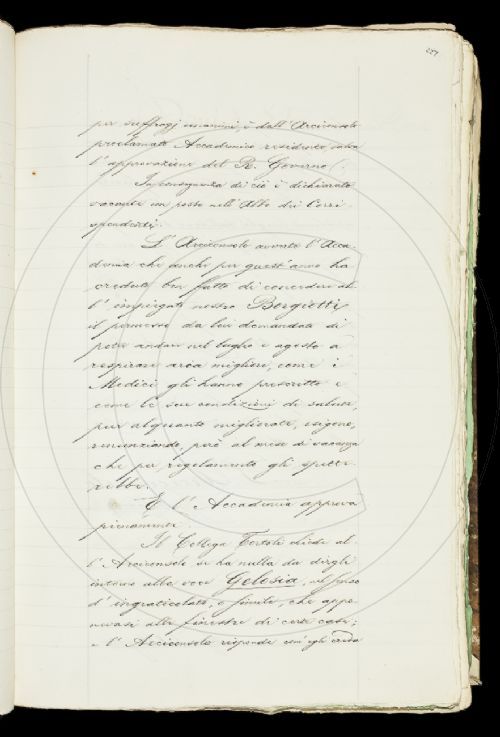 257
per suffragj unanimi, è dall'Arciconsolo
proclamato Accademico residente salva
l'approvazione del R. Governo.
In conseguenza di ciò è dichiarato
vacante un posto nell'Albo dei Corri-
spondenti.
L'Arciconsolo avverte l'Acca-
demia che anche per quest'anno ha
creduto ben fatto di concedere al-
l'impiegato nostro Borgiotti
il permesso da lui domandato di
poter andare nel luglio e agosto a
respirare aria migliore, come i
Medici gli hanno prescritto e
come le sue condizioni di salute,
pur alquanto migliorate, esigono,
rinunziando, però al mese di vacanza
che per regolamento gli spette-
rebbe.
E l'Accademia approva
pienamente.
Il Collega Tortoli chiede al-
l'Arciconsolo se ha nulla da dirgli
intorno alla voce Gelosia, nel senso
d'ingraticolato, o simile, che appo-
nevasi alle finestre di certe case;
e l'Arciconsolo risponde com'egli creda